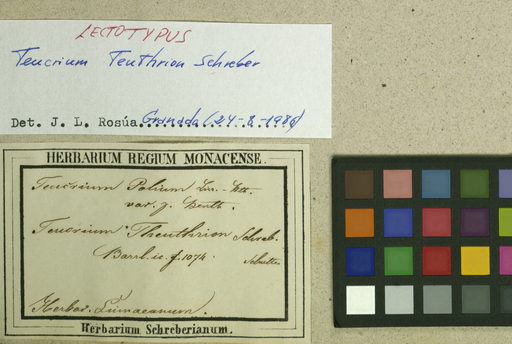 LECTOTYPUS
Teucrium Teuthrion Schreber
Det. J. L. Rosúa. Granada (24-8-1986)
HERBARIUM REGIUM MONACENSE.
Teucrium Polium Lin.
var. g. Benth.
Teucrium Theuthrion Schreb.
Barrl. ic. f. 1074.
Herbar.
Herbarium Schreberianum.